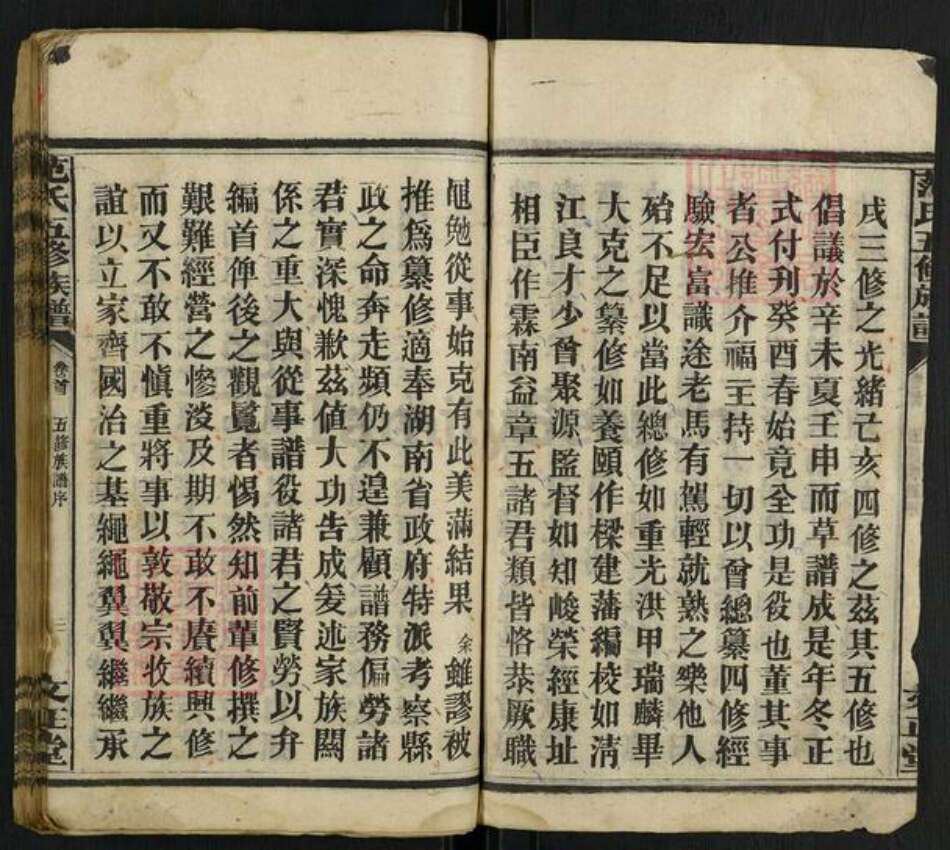 戌三修之光緒己亥四修之茲其五修也
倡議於辛未夏壬申而草譜成是年冬正
式付刋癸酉春始竟全功是役也董其事
者公推介福主持一切以曾總纂四修經
驗宏富識途老馬有駕輕就熟之樂他人
殆不足以當此總修如重光洪甲瑞麟畢
大克之纂修如養頤作樑建藩編校如清
江良才少曾聚源監督如知峻榮經康址
相臣作霖南益章五諸君類皆恪恭厥職
黽勉從事始克有此美滿結果余雖謬被
推爲纂修適奉湖南省政府特派考察縣
政之命奔走頻仍不遑兼顧譜務偏勞諸
君實深愧歉茲值大功告成爰述家族關
係之重大與從事譜役諸君之賢勞以弁
編首俾後之觀覽者惕然知前輩修撰之
艱難經營之慘淡及期不敢不賡續興修
而又不敢不慎重將事以敦敬宗收族之
誼以立家齊國治之基繩繩翼翼繼繼承
范氏五修族譜
卷首
五修族譜序
文正堂